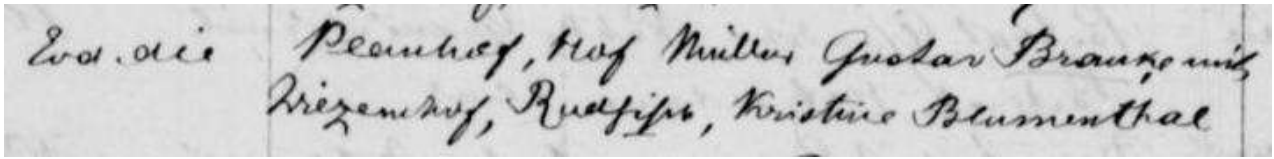 Eva. die Planhof, Hof Müller Gustav Brauże mit
Wiezemhof, Kristine Blumenthal